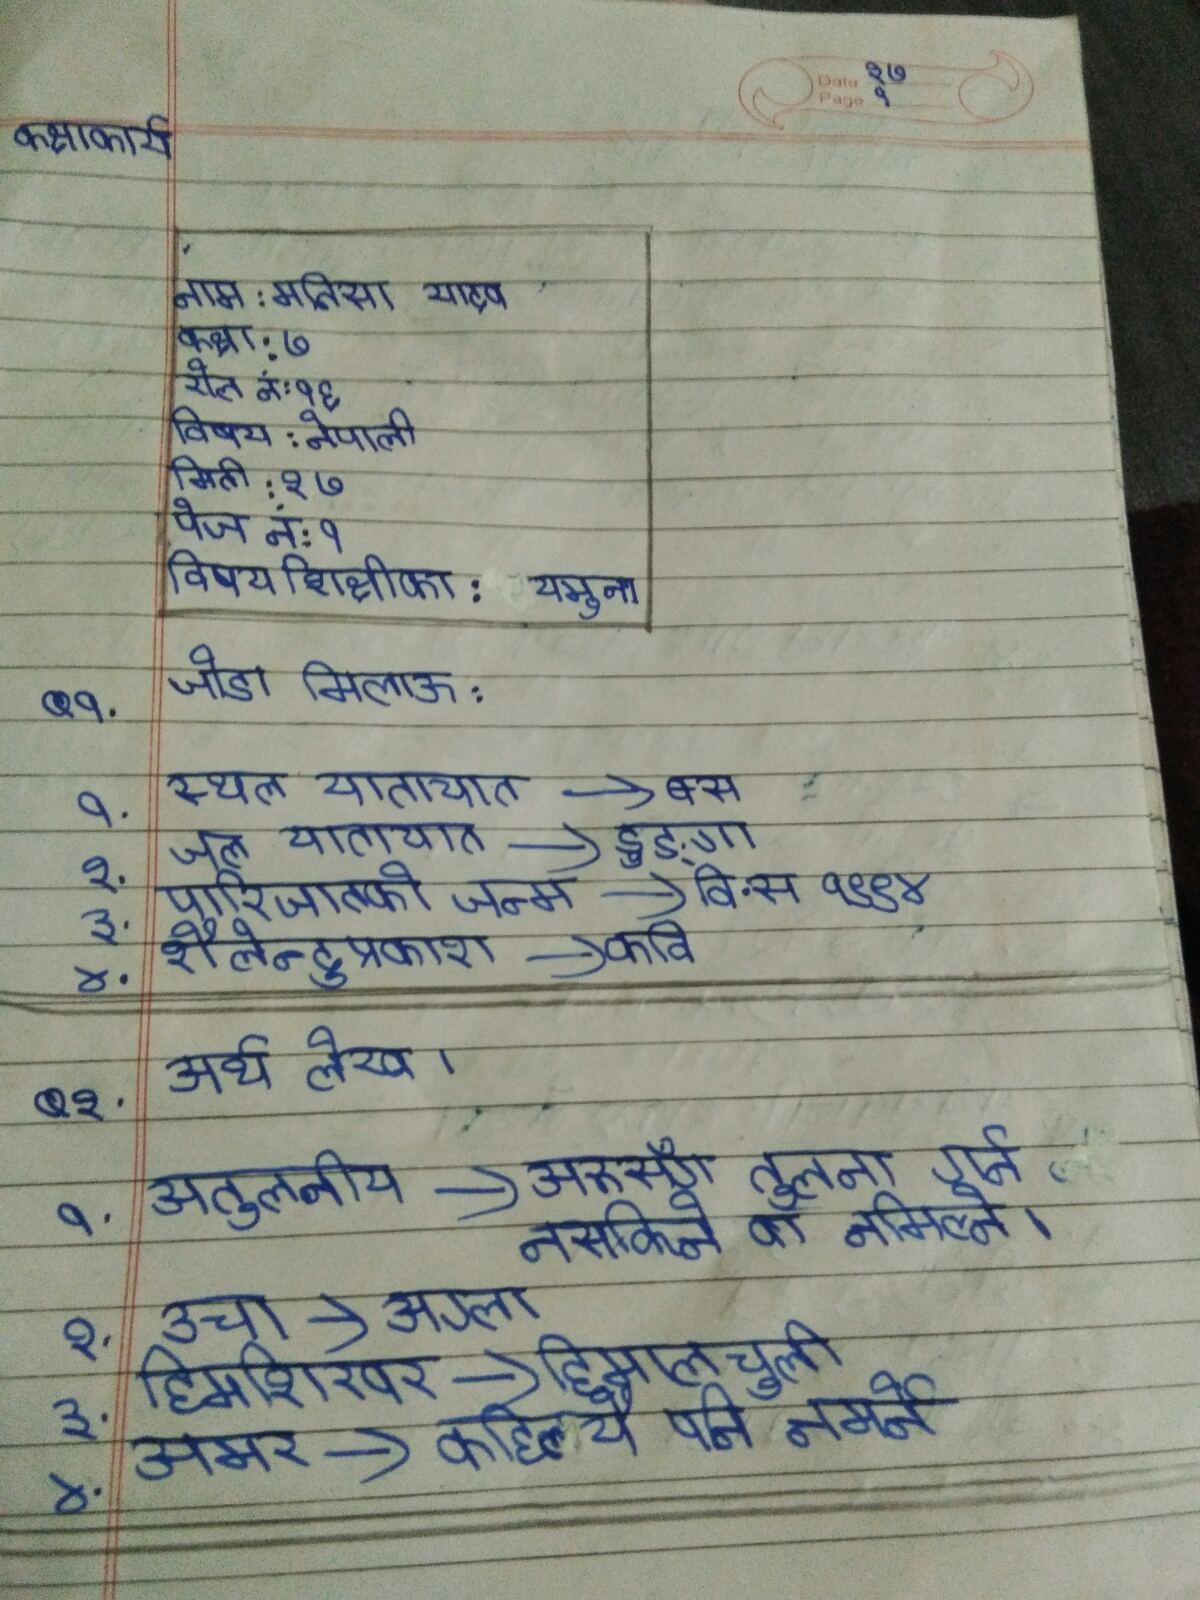 Data २७
Page १
कक्षाकार्य
नाम : मनिसा यादव
कक्षा : ७
रोल नं : १६
विषय : नेपाली
मिती : २७
पेज नं : १
विषय शिक्षीका : यमुना
Q१. जोडा मिलाऊ :
१. स्थल यातायात → बस
२. जल यातायात → डुङ्गा
३. पारिजातको जन्म → वि.स १९९४
४. शैलेन्द्रप्रकाश → कवि
Q२. अर्थ लेख ।
१. अतुलनीय → अरूसँग तुलना गर्न
नसकिने वा नमिल्ने ।
२. उचा → अग्ला
३. हिमशिखर → हिमालचुली
४. अमर → कहिल्यै पनि नमर्ने